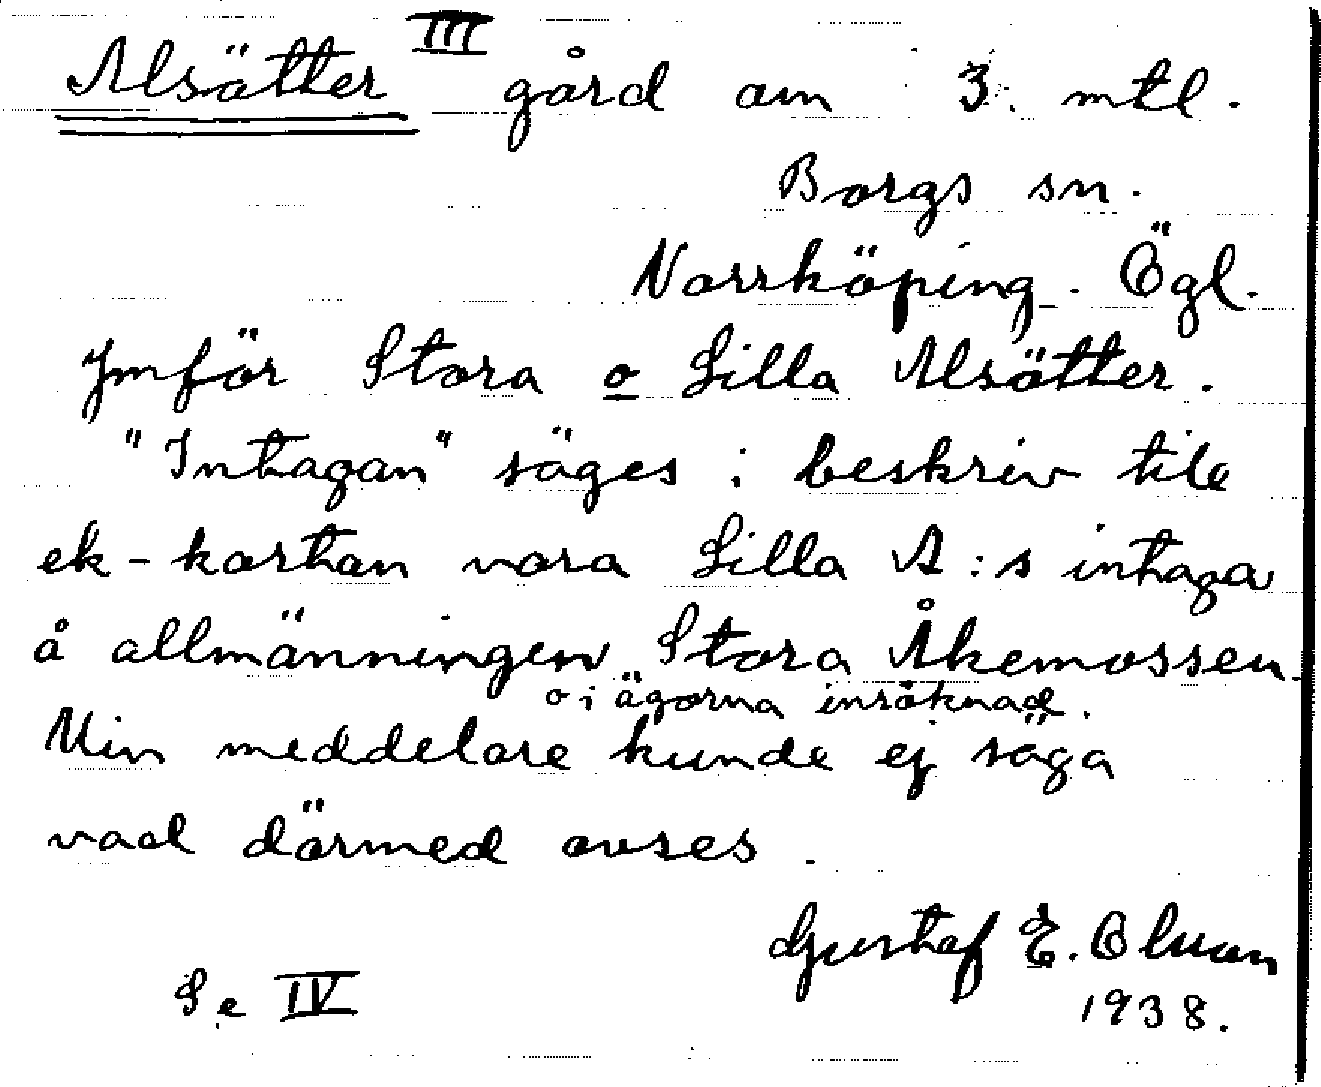 Alsätter III gård om 3. mtl.
Borgs sn.
Norrköping. Ögl.
Jmför Stora o Lilla Alsätter.
"Inhagan" säges i beskriv till
ek-kartan vara Lilla A:s inhaga
å allmänningen Stora Åkemossen
o i ägorna inräknad.
Min meddelare kunde ej säga
vad därmed avses.
Gustaf E. Olson
1938.
Se IV